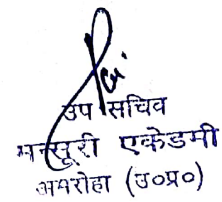 उप सचिव
मन्सूरी एकेडमी
अमरोहा (उ०प्र०)